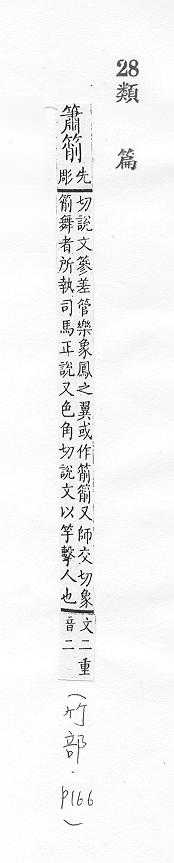 28
類篇
簫箾先
彫
切說文參差管樂象鳳之翼或作箾箾又師交切象
箾舞者所執司馬正說又色角切說文以竿擊人也
文二重
音二
(竹部.P166)